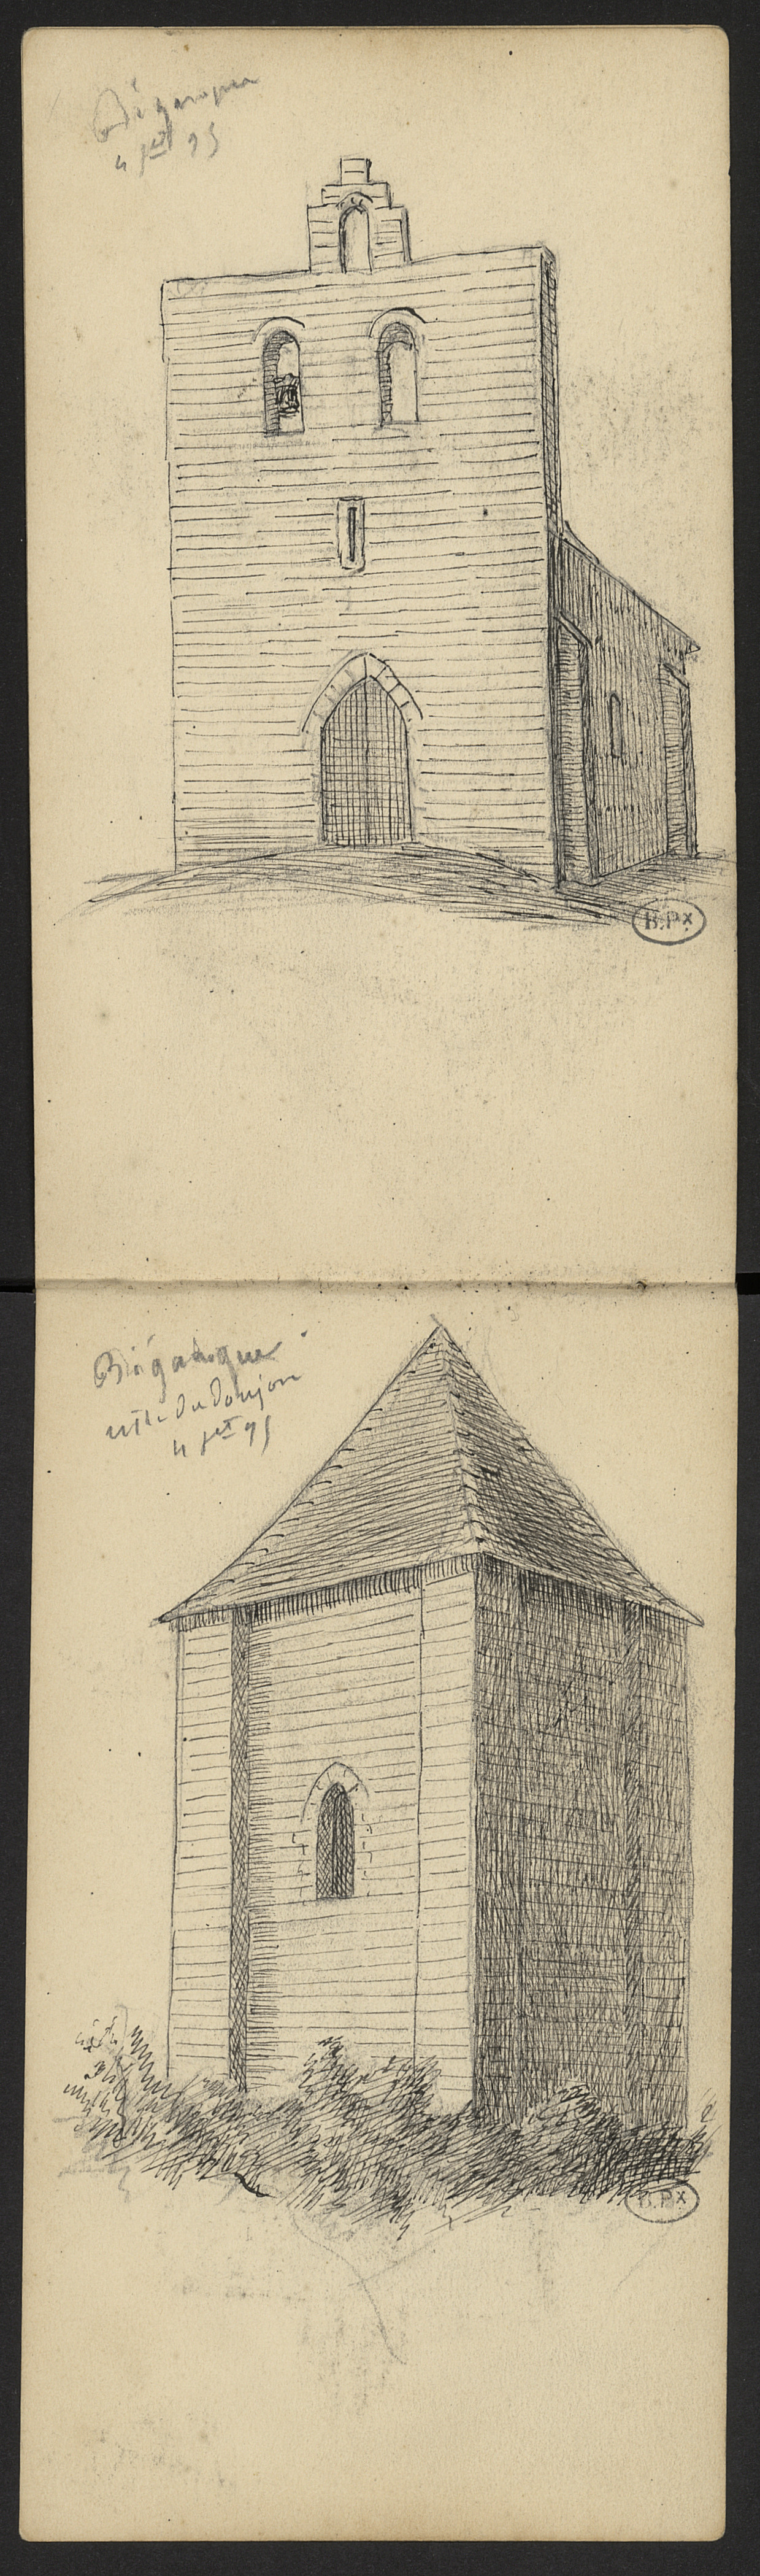 Bigaroque
4 7et 95
B.Px
Bigaroque
côté du donjon
4 7et 95
B.Px